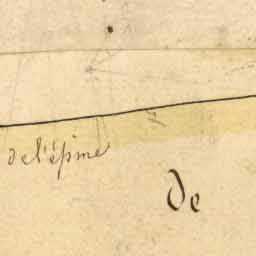 de l'épine
De